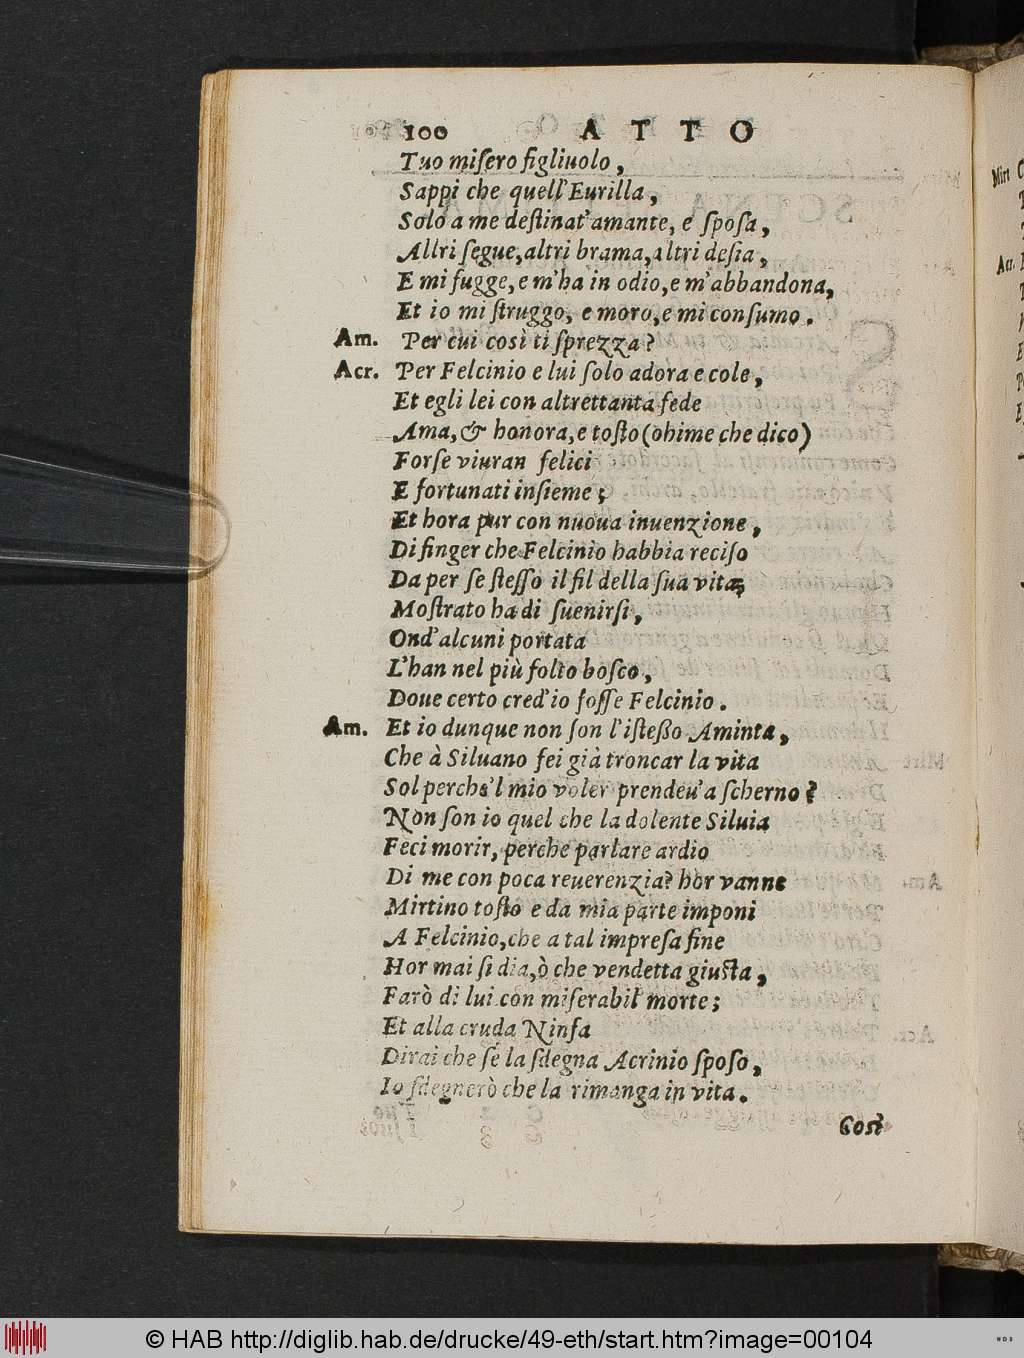 100 ATTO
Tuo miſero figliuolo,
Sappi che quell'Eurilla,
Solo a me deſtinat'amante, e ſpoſa,
Allri ſegue, altri brama, altri deſia,
E mi fugge, e m'ha in odio, e m'abbandona,
Et io mi ſtruggo, e moro, e mi conſumo.
Am. Per cui così ti ſprezza?
Acr. Per Felcinio e lui ſolo adora e cole,
Et egli lei con altrettanta fede
Ama, & honora, e toſto (ohime che dico)
Forſe viuran felici
E fortunati inſieme;
Et hora pur con nuoua inuenzione,
Di finger che Felcinio habbia reciſo
Da per ſe ſteſſo il fil della ſua vita;
Moſtrato ha di ſuenirſi,
Ond'alcuni portata
L'han nel più folto boſco,
Doue certo cred'io foſſe Felcinio.
Am. Et io dunque non ſon l'iſteßo Aminta,
Che à Siluano fei già troncar la vita
Sol perche'l mio voler prendeu'a ſcherno?
Non ſon io quel che la dolente Siluia
Feci morir, perche parlare ardio
Di me con poca reuerenzia? hor vanne
Mirtino toſto e da mia parte imponi
A Felcinio, che a tal impreſa fine
Hor mai ſi dia, ò che vendetta giuſta,
Farò di lui con miſerabil morte;
Et alla cruda Ninfa
Dirai che ſe la ſdegna Acrinio ſpoſo,
Io ſdegnerò che la rimanga in vita.
Così
Mirt
Acr.
© HAB http://diglib.hab.de/drucke/49-eth/start.htm?image=00104